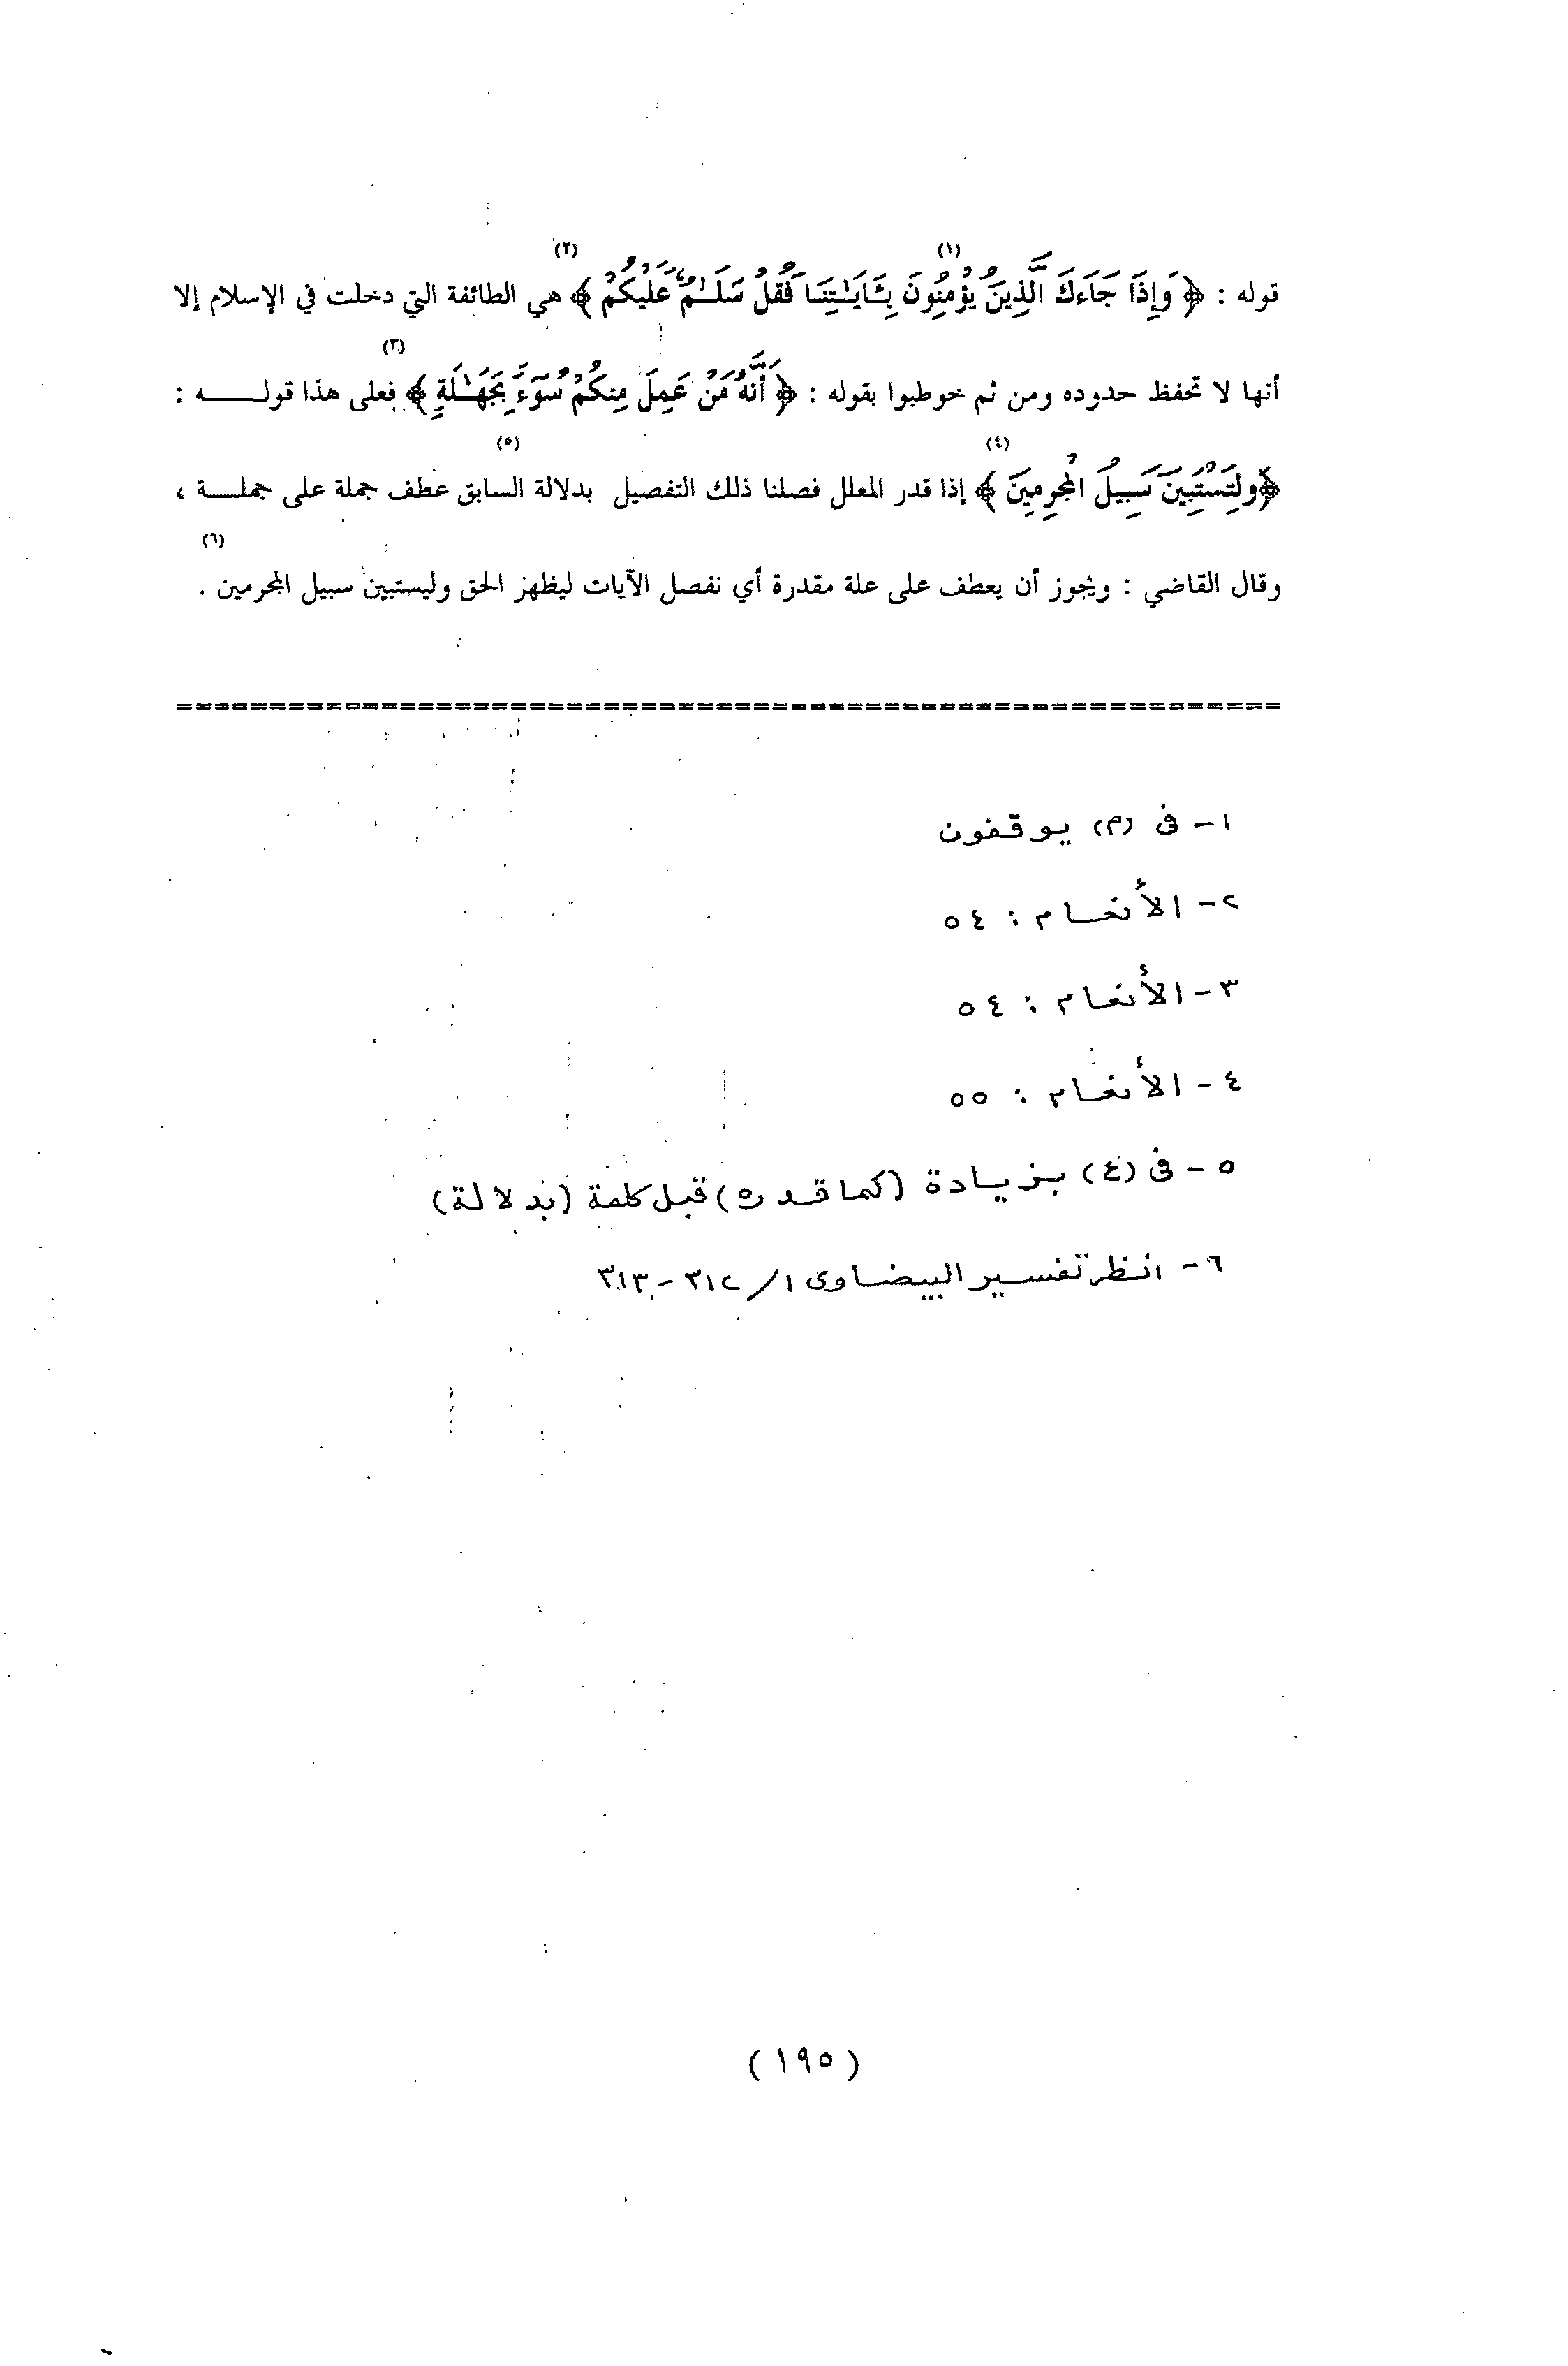 قوله : ﴿ وَإِذَا جَاءَكَ الَّذِينَ يُؤْمِنُونَ (١) بِـَٔايَـٰتِنَا فَقُلْ سَلَـٰمٌ عَلَيْكُمْ ﴾ (٢) هي الطائفة التي دخلت في الإسلام إلا
أنها لا تحفظ حدوده ومن ثم خوطبوا بقوله : ﴿ أَنَّهُ مَنْ عَمِلَ مِنكُمْ سُوٓءَۢا بِجَهَـٰلَةٍ ﴾ (٣) فعلى هذا قولـــه :
﴿ وَلِتَسْتَبِينَ سَبِيلُ الْمُجْرِمِينَ ﴾ (٤) إذا قدر المعلل فصلنا ذلك التفصيل (٥) بدلالة السابق عطف جملة على جملـة ،
وقال القاضي : ويجوز أن يعطف على علة مقدرة أي نفصل الآيات ليظهر الحق وليستبين سبيل المجرمين (٦) .
١- فى (م) يوقفون
٢- الأنعام : ٥٤
٣- الأنعام : ٥٤
٤- الأنعام : ٥٥
٥- فى (ع) بزيادة (كما قدره) قبل كلمة (بدلالة)
٦- انظر تفسير البيضاوى ١/ ٣١٢ - ٣١٣
( ١٩٥ )